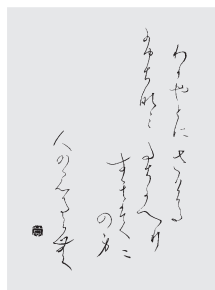 わか也とに さける
ふち那ミ たちかへり
すきかてニ
の身
人のみるら無